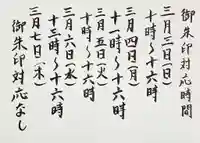 御朱印対応時間
三月三日(日)
十時〜十六時
三月四日(月)
十一時〜十六時
三月五日(火)
十時〜十六時
三月六日(水)
十三時〜十六時
三月七日(木)
御朱印対応なし